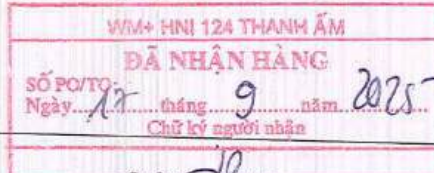 WM+ HNI 124 THANH ẤM
ĐÃ NHẬN HÀNG
SỐ PO/TO:
Ngày 17 tháng 9 năm 2025
Chữ ký người nhận